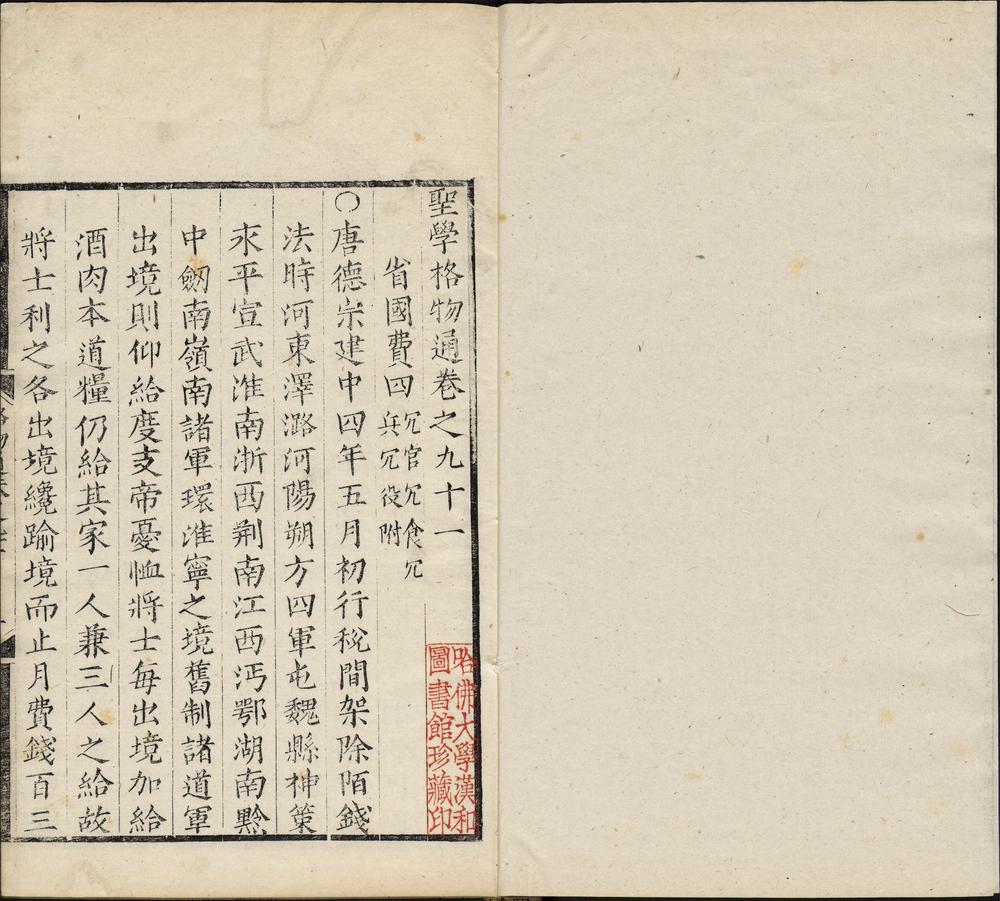 聖學格物通卷之九十一
省國費四冗官冗食冗
兵冗役附
○唐德宗建中四年五月初行稅間架除陌錢
法時河東澤潞河陽朔方四軍屯魏縣神策
永平宣武淮南浙西荆南江西沔鄂湖南黔
中劒南嶺南諸軍環淮寧之境舊制諸道軍
出境則仰給度支帝憂恤將士每出境加給
酒肉本道糧仍給其家一人兼三人之給故
將士利之各出境纔踰境而止月費錢百三
哈佛大學漢和
圖書館珍藏印